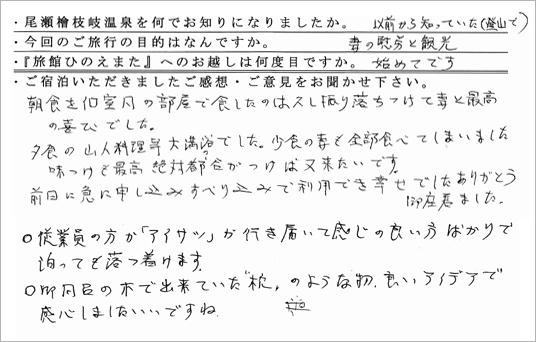 ・尾瀬檜枝岐温泉を何でお知りになりましたか。 以前から知っていた(登山で)
・今回のご旅行の目的はなんですか。 妻の慰労と観光
・『旅館ひのえまた』へのお越しは何度目ですか。 始めてです
・ご宿泊いただきましたご感想・ご意見をお聞かせ下さい。
朝食を個室風の部屋で食したのは久し振り落ちつけて妻と最高
の喜びでした。
夕食の山人料理等大満浴でした。少食の妻も全部食べてしまいました
味つけも最高 絶対都合がつけば又来たいです。
前日に急に申し込みすべり込みで利用でき幸せでしたありがとう
御座居ました。
○従業員の方が「アイサツ」が行き届いて感じの良い方ばかりで
泊っても落つ着けます。
○円筒の木で出来ていた"枕"のような物、良いアイデアで
感心しましたいいですね